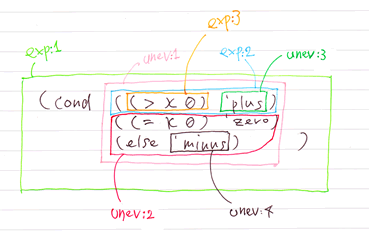 exp:3
exp:1
unev:1
exp:2
unev:3
(cond ((> x 0) 'plus)
((= x 0) 'zero)
(else 'minus) )
unev:2
unev:4